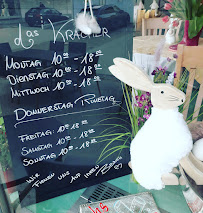 das KRACHER
MONTAG 10⁰⁰ - 18⁰⁰
DIENSTAG 10⁰⁰ - 18⁰⁰
MITTWOCH 10⁰⁰ - 18⁰⁰
DONNERSTAG RUHETAG
FREITAG: 10⁰⁰ - 18⁰⁰
SAMSTAG 10⁰⁰ - 18⁰⁰
SONNTAG 10⁰⁰ - 18⁰⁰
WIR
FREUEN UNS AUF IHREN BESUCH